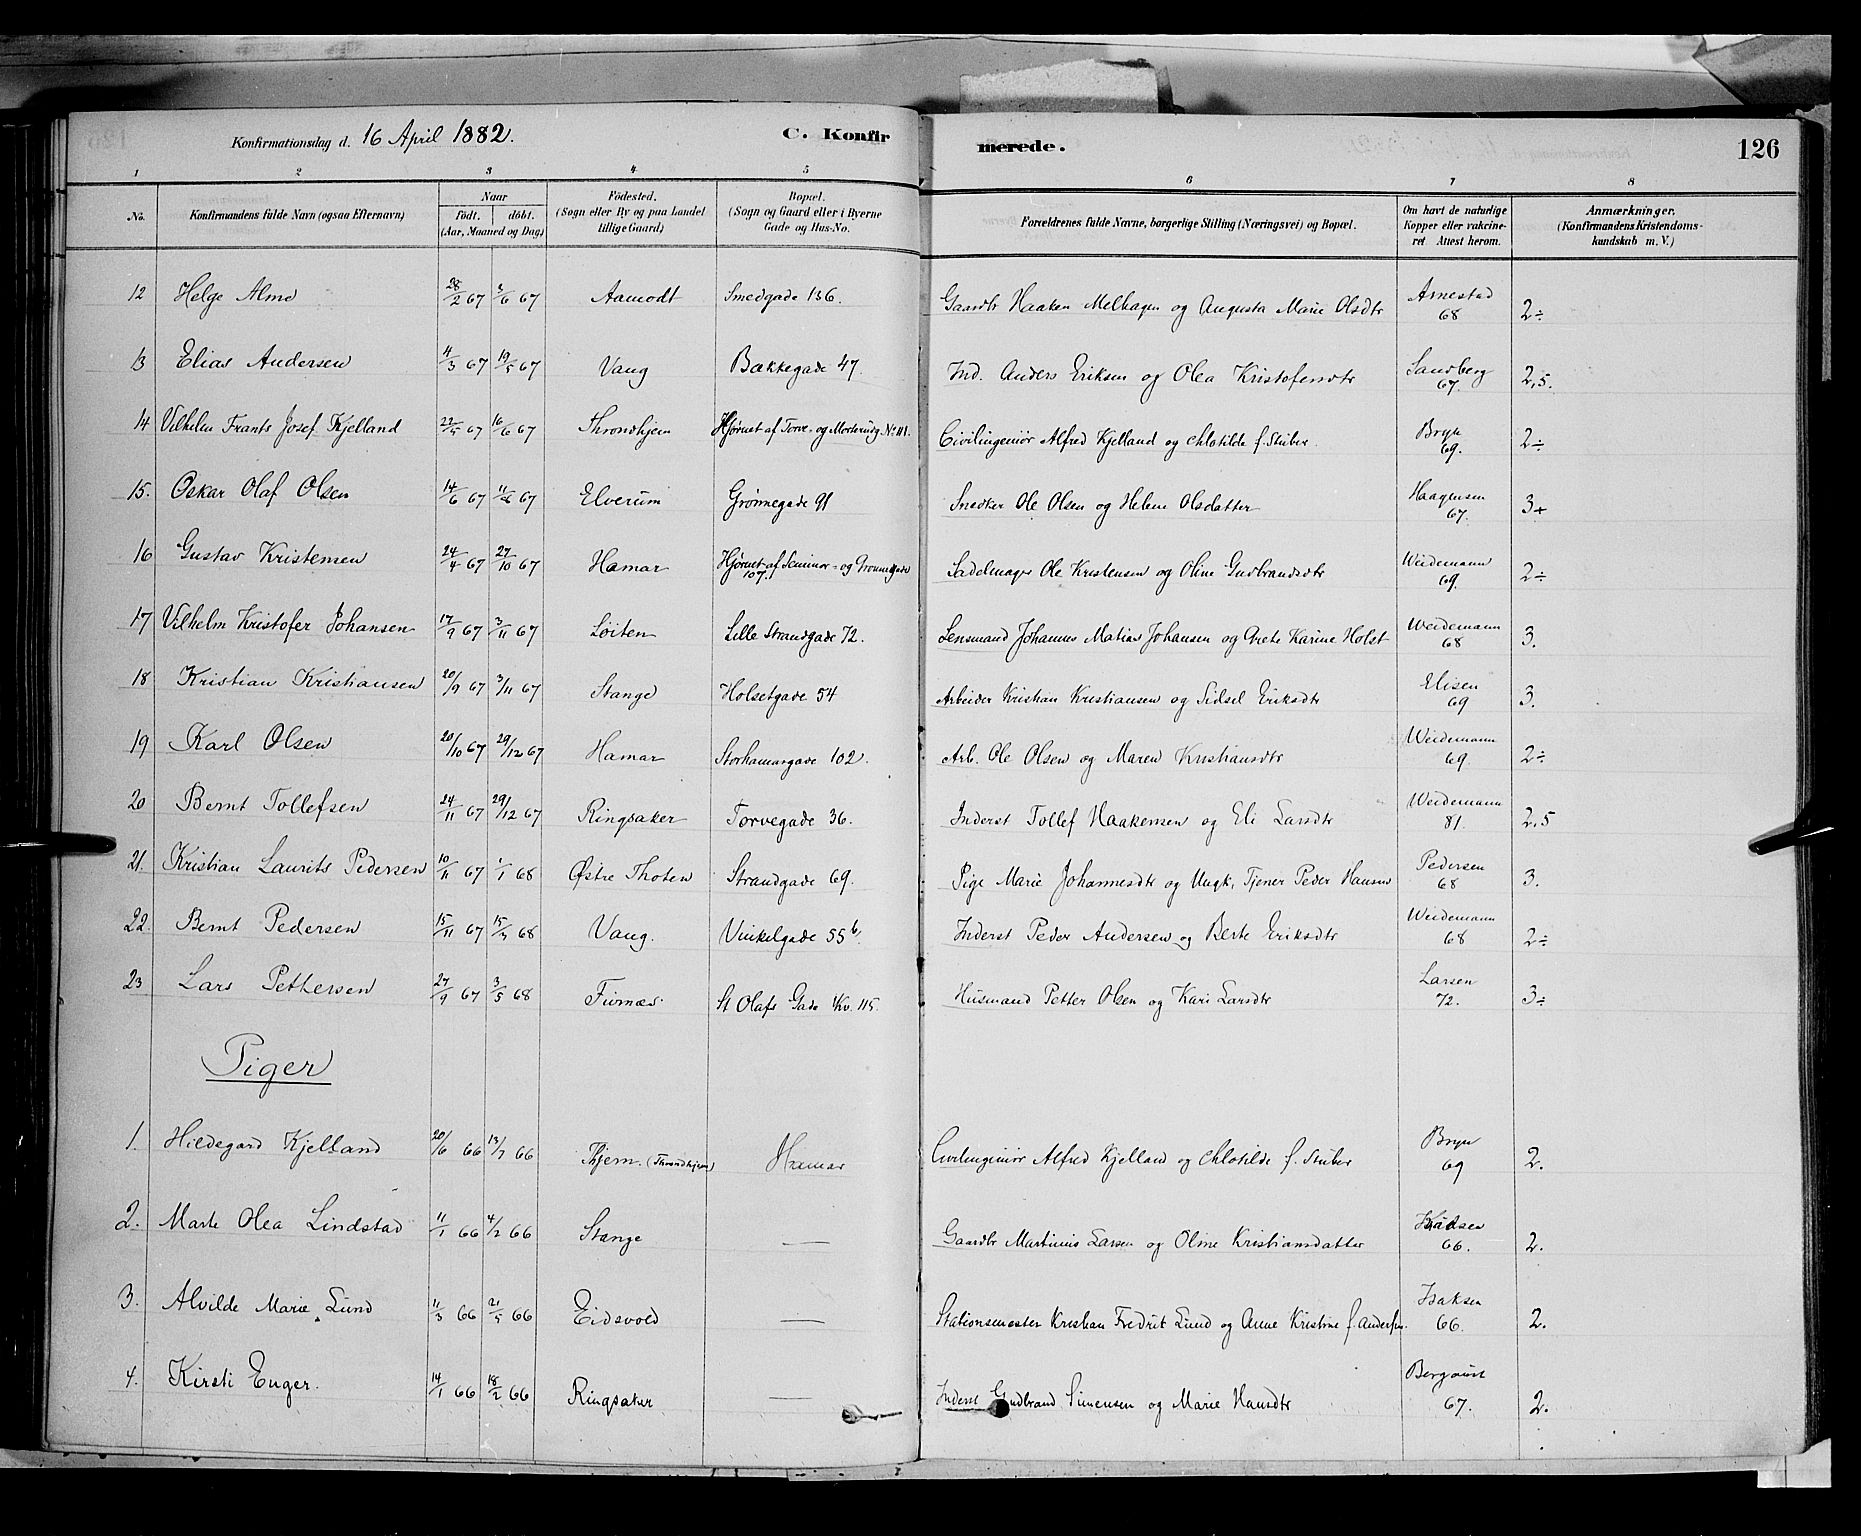 Konfirmationsdag d. 16 April 1882.
C. Konfirmerede.
126
1 2 3 4 5 6 7 8
No.
Konfirmandens fulde Navn (ogsaa Efternavn)
Naar
födt. döbt.
(Aar, Maaned og Dag)
Födested.
(Sogn eller By og paa Landet tillige Gaard)
Bopæl.
(Sogn og Gaard eller i Byerne Gade og Hus-No.
Forældrenes fulde Navne, borgerlige Stilling (Næringsvei) og Bopæl.
Om havt de naturlige Kopper eller vakcineret. Attest herom.
Anmærkninger.
(Konfirmandens Kristendomskundskab m. V.)
12 Helge Alme 28/2 67 3/6 67 Aamodt Smedgade 136. Gaardbr Haaken Melhagen og Augusta Marie Olsdtr Arnestad 68 2÷
13 Elias Andersen 4/3 67 19/5 67 Vang Bækkegade 47. Ind. Anders Eriksen og Olea Kristofersdtr Sandberg 67. 2,5.
14 Vilhelm Frants Josef Kjelland 22/5 67 16/6 67 Throndhjem Hjørnet af Torve- og Morterudg. No 111. Civilingeniør Alfred Kjelland og Chlotilde f. Stuber Bryn 69. 2÷
15. Oskar Olaf Olsen 14/6 67 11/8 67 Elverum Grønnegade 91 Snedker Ole Olsen og Helene Olsdatter Haagensen 67. 3+
16 Gustav Kristensen 24/4 67 27/10 67 Hamar Hjørnet af Seminar- og Grønnegade 107. Sadelmager Ole Kristensen og Oline Gudbrandsdtr Weidemann 69. 2÷
17 Vilhelm Kristofer Johansen 17/9 67 3/11 67 Løiten Lille Strandgade 72. Lensmand Johannes Matias Johansen og Grete Karine Holst Weidemann 68 3.
18 Kristian Kristiansen 20/9 67 3/11 67 Stange Holsetgade 54 Arbeider Kristian Kristiansen og Sidsel Eriksdtr Elisen 69 3.
19 Karl Olsen 20/10 67 29/12 67 Hamar Storhamargade 102. Arb. Ole Olsen og Maren Kristiansdtr Weidemann 69. 2÷
20 Bernt Tollefsen 24/11 67 29/12 67 Ringsaker Torvegade 36. Inderst Tollef Haakensen og Eli Larsdtr Weidemann 81. 2,5
21. Kristian Laurits Pedersen 10/11 67 1/1 68 Østre Thoten Strandgade 69. Pige Marie Johannesdtr og Ungk. Tjener Peder Hansen Pedersen 68 3.
22. Bernt Pedersen 15/11 67 15/3 68 Vang. Vinkelgade 55 b. Inderst Peder Andersen og Berte Eriksdtr Weidemann 68 2÷
23 Lars Pettersen 27/9 67 3/5 68 Furnæs St Olafs Gade Kv. 115. Husmand Petter Olsen og Kari Larsdtr Larsen 72. 3÷
Piger
1. Hildegard Kjelland 20/6 66 13/7 66 Thjem. (Throndhjem) Hamar Civilingeniør Alfred Kjelland og Chlotilde f. Stuber Bryn 69 2.
2. Marte Olea Lindstad 11/1 66 4/2 66 Stange — Gaardbr Martinius Larsen og Oline Kristiansdatter 66. 2.
3. Alvilde Marie Lund 11/3 66 21/5 66 Eidsvold — Stationsmester Kristian Fredrik Lund og Anne Kristine f. Andersen. Isaksen 66. 2.
4. Kirsti Enger. 14/1 66 18/2 66 Ringsaker — Inderst Gudbrand Simensen og Marie Hansdtr Bergqvist 67. 2.